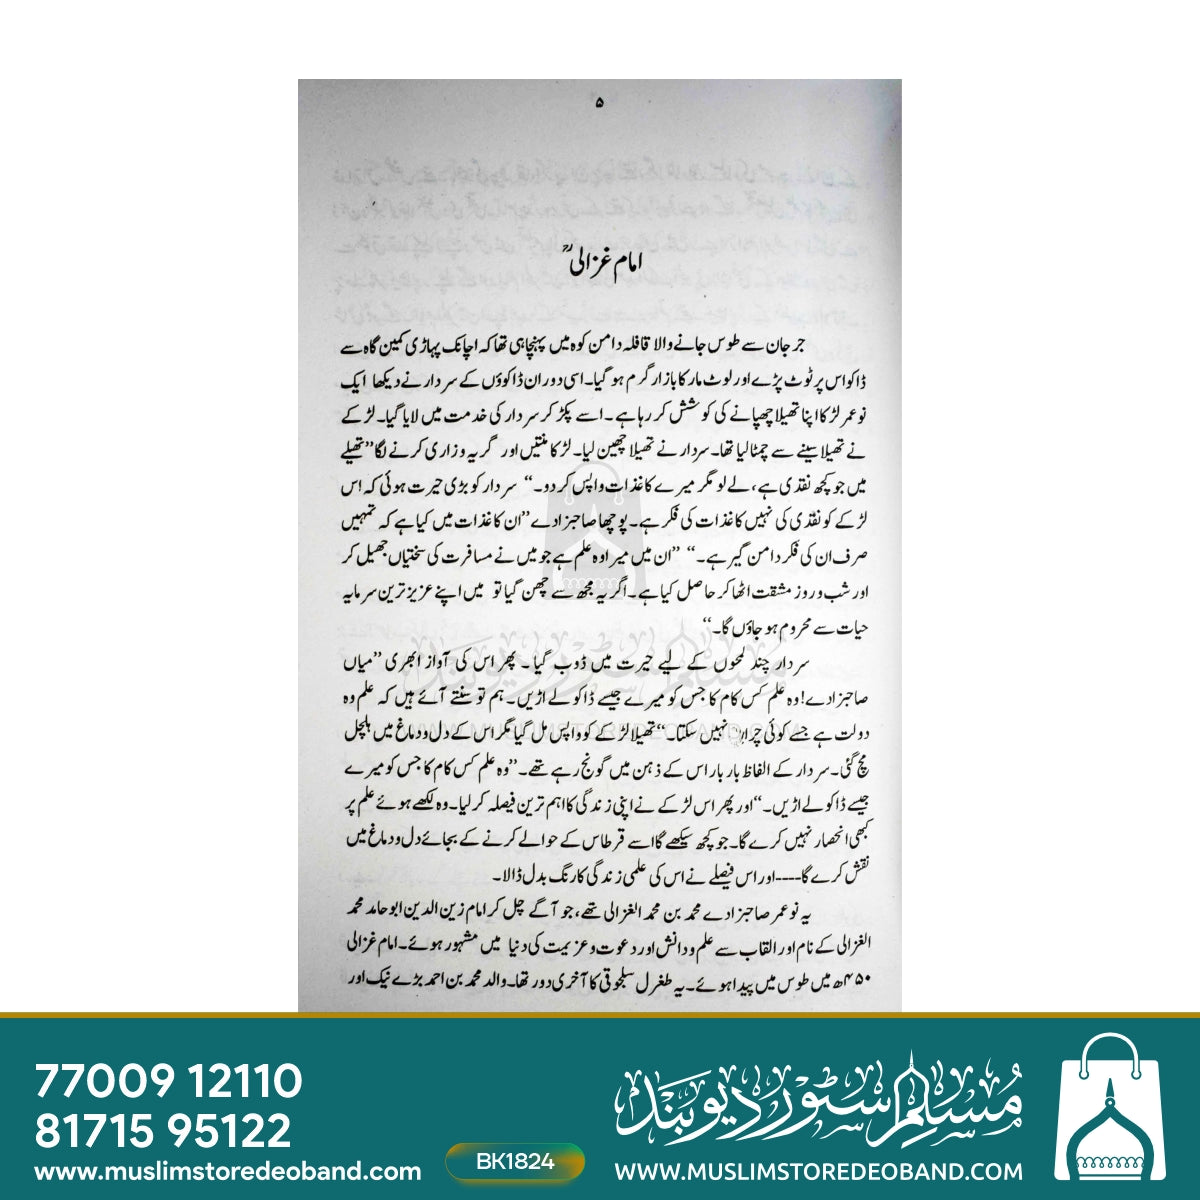 ۵
امام غزالیؒ
جرجان سے طوس جانے والا قافلہ دامن کوہ میں پہنچا ہی تھا کہ اچانک پہاڑی کمین گاہ سے
ڈاکو اس پر ٹوٹ پڑے اور لوٹ مار کا بازار گرم ہو گیا۔ اسی دوران ڈاکوؤں کے سردار نے دیکھا ایک
نوعمر لڑکا اپنا تھیلا چھپانے کی کوشش کر رہا ہے۔ اسے پکڑ کر سردار کی خدمت میں لایا گیا۔ لڑکے
نے تھیلا سینے سے چمٹا لیا تھا۔ سردار نے تھیلا چھین لیا۔ لڑکا منتیں اور گریہ وزاری کرنے لگا ”تھیلے
میں جو کچھ نقدی ہے، لے لو مگر میرے کاغذات واپس کر دو۔“ سردار کو بڑی حیرت ہوئی کہ اس
لڑکے کو نقدی کی نہیں کاغذات کی فکر ہے۔ پوچھا صاحبزادے ”ان کاغذات میں کیا ہے کہ تمہیں
صرف ان کی فکر دامن گیر ہے۔“ ”ان میں میرا وہ علم ہے جو میں نے مسافرت کی سختیاں جھیل کر
اور شب و روز مشقت اٹھا کر حاصل کیا ہے۔ اگر یہ مجھ سے چھن گیا تو میں اپنے عزیز ترین سرمایہ
حیات سے محروم ہو جاؤں گا۔“
سردار چند لمحوں کے لیے حیرت میں ڈوب گیا۔ پھر اس کی آواز ابھری ”میاں
صاحبزادے! وہ علم کس کام کا جس کو میرے جیسے ڈاکو لے اڑیں۔ ہم تو سنتے آئے ہیں کہ علم وہ
دولت ہے جسے کوئی چرا نہیں سکتا۔“ تھیلا لڑکے کو واپس مل گیا مگر اس کے دل و دماغ میں ہلچل
مچ گئی۔ سردار کے الفاظ بار بار اس کے ذہن میں گونج رہے تھے۔ ”وہ علم کس کام کا جس کو میرے
جیسے ڈاکو لے اڑیں۔“ اور پھر اس لڑکے نے اپنی زندگی کا اہم ترین فیصلہ کر لیا۔ وہ لکھے ہوئے علم پر
کبھی انحصار نہیں کرے گا۔ جو کچھ سیکھے گا اسے قرطاس کے حوالے کرنے کے بجائے دل و دماغ میں
نقش کرے گا---- اور اس فیصلے نے اس کی علمی زندگی کا رنگ بدل ڈالا۔
یہ نوعمر صاحبزادے محمد بن محمد الغزالی تھے، جو آگے چل کر امام زین الدین ابو حامد محمد
الغزالی کے نام اور القاب سے علم و دانش اور دعوت و عزیمت کی دنیا میں مشہور ہوئے۔ امام غزالی
۴۵۰ھ میں طوس میں پیدا ہوئے۔ یہ طغرل سلجوقی کا آخری دور تھا۔ والد محمد بن احمد بڑے نیک اور
مسلم سٹور دیوبند
WWW.MUSLIMSTOREDEOBAND.COM
77009 12110
81715 95122
www.muslimstoredeoband.com
BK1824
مسلم سٹور دیوبند
WWW.MUSLIMSTOREDEOBAND.COM